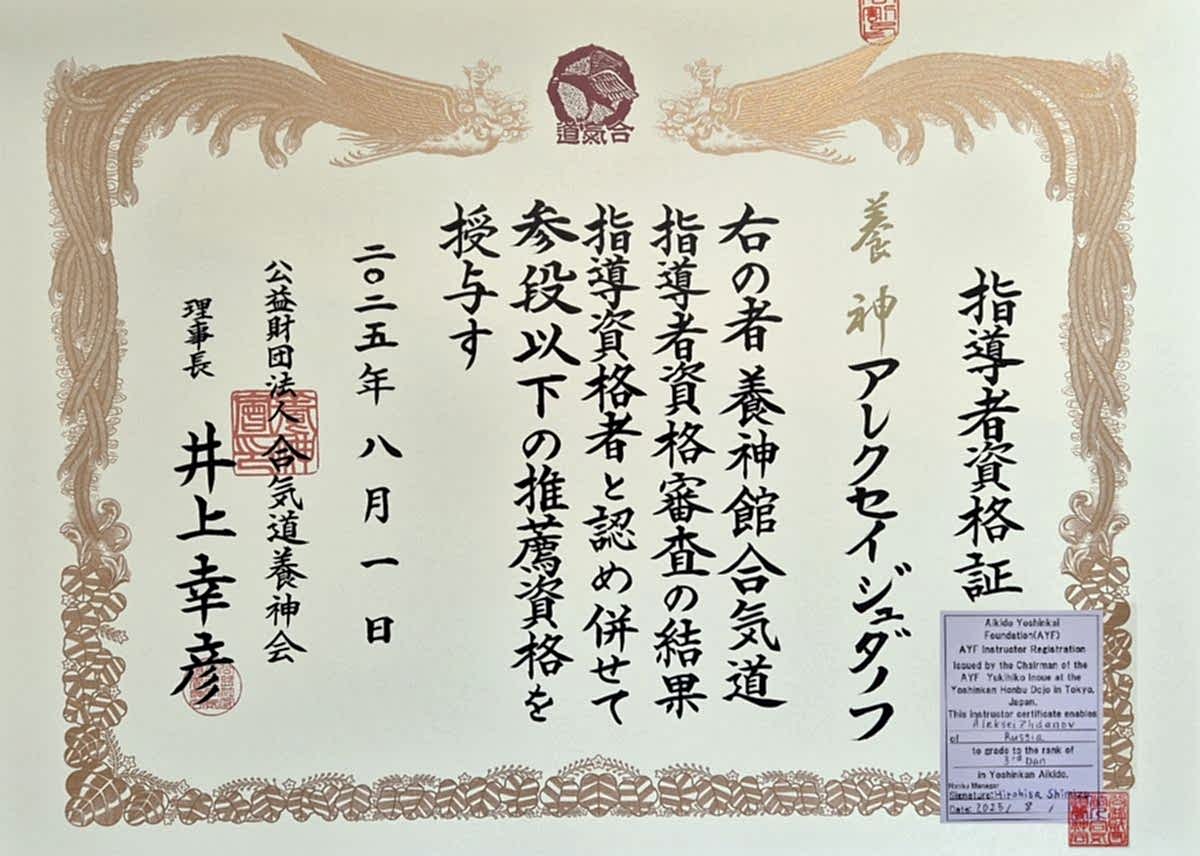 合氣道
指導者資格証
養神 アレクセイ ジュダノフ
右の者 養神館合気道
指導者資格審査の結果
指導資格者と認め併せて
参段以下の推薦資格を
授与す
二〇二五年 八月 一日
公益財団法人 合気道養神会
理事長 井上幸彦
Aikido Yoshinkai
Foundation(AYF)
AYF Instructor Registration
Issued by the Chairman of the
AYF Yukihiko Inoue at the
Yoshinkan Honbu Dojo in Tokyo,
Japan.
This instructor certificate enables
Aleksei Zhdanov
of Russia
to grade to the rank of
3rd Dan
in Yoshinkan Aikido.
Signature: Hirohisa Shimizu
Date: 2025/ 8/ 1